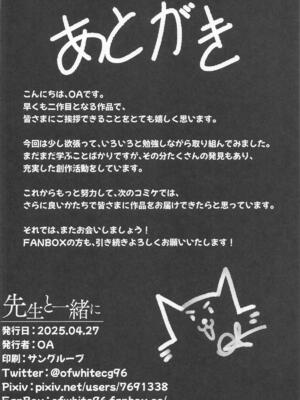 あとがき
こんにちは、OAです。
早くも二作目となる作品で、
皆さまにご挨拶できることをとても嬉しく思います。
今回は少し欲張って、いろいろと勉強しながら取り組んでみました。
まだまだ学ぶことばかりですが、その分たくさんの発見もあり、
充実した創作活動をしています。
これからもっと努力して、次のコミケでは、
さらに良いかたちで皆さまに作品をお届けできたらと思っています。
それでは、またお会いしましょう！
FANBOXの方も、引き続きよろしくお願いいたします！
先生と一緒に
発行日：2025.04.27
発行者：OA
印刷：サングループ
Twitter：@ofwhitecg96
Pixiv：pixiv.net/users/7691338